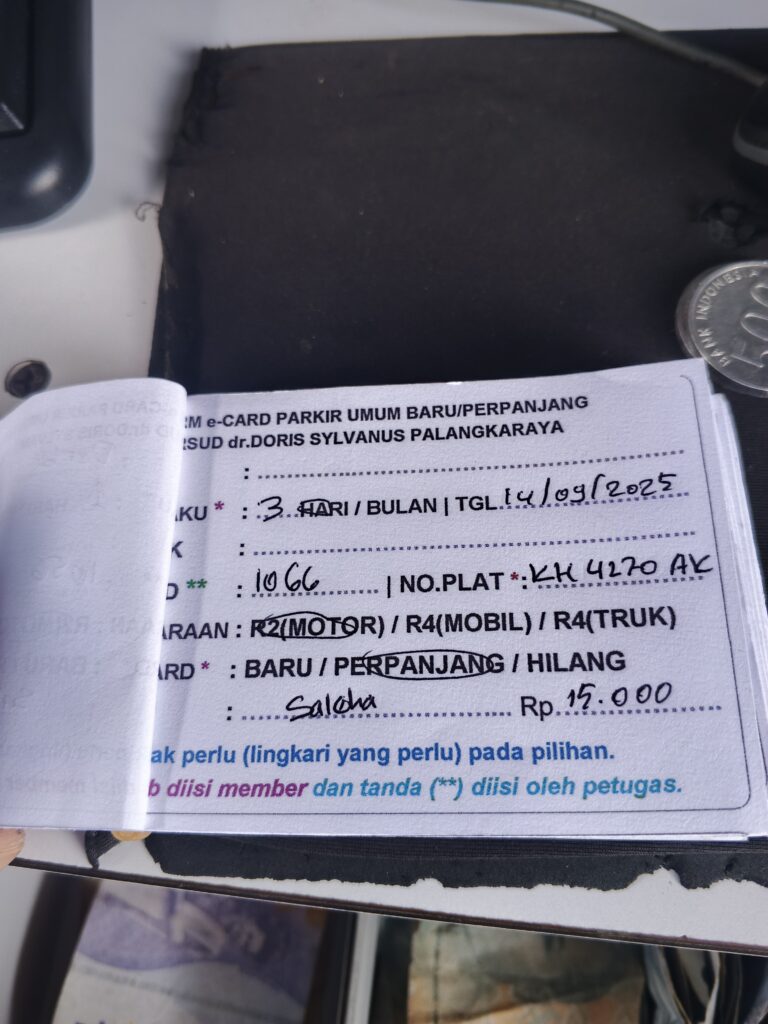 RM e-CARD PARKIR UMUM BARU/PERPANJANG
RSUD dr.DORIS SYLVANUS PALANGKARAYA
:
AKU * : 3 HARI / BULAN | TGL. 14/09/2025
K :
D ** : 1066 | NO.PLAT *: KH 4270 AK
ARAAN : R2(MOTOR) / R4(MOBIL) / R4(TRUK)
ARD * : BARU / PERPANJANG / HILANG
: Saleha Rp. 15.000
ak perlu (lingkari yang perlu) pada pilihan.
b diisi member dan tanda (**) diisi oleh petugas.
BANK INDONESIA
500